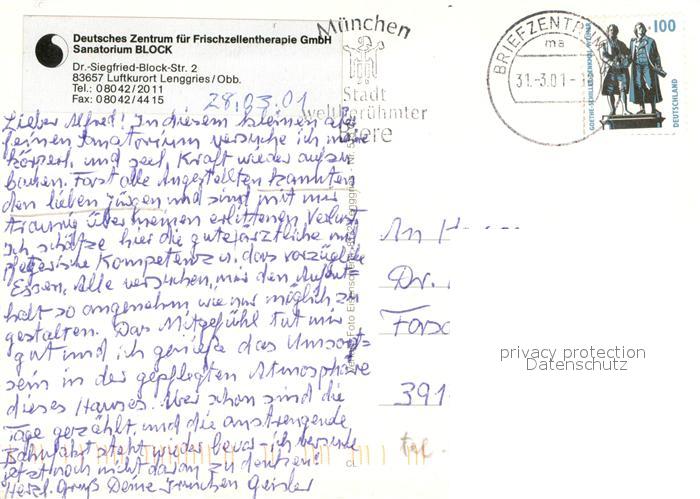 Deutsches Zentrum für Frischzellentherapie GmbH
Sanatorium BLOCK
Dr.-Siegfried-Block-Str. 2
83657 Luftkurort Lenggries/Obb.
Tel.: 0 80 42/20 11
Fax: 0 80 42/44 15
28.03.01
Lieber Alfred! In diesem kleinen aber
feinen Sanatorium versuche ich meine
körperl. und seel. Kraft wieder aufzu
bauen. Fast alle Angestellten kannten
den lieben Jürgen und sind mit mir
traurig über meinen erlittenen Verlust.
Ich schätze hier die gute ärztliche und
pflegerische Kompetenz u. das vorzügliche
Essen. Alle versuchen, mir den Aufent=
halt so angenehm wie nur möglich zu
gestalten. Das Mitgefühl tut mir
gut und ich genieße das Umsorgt=
sein in der gepflegten Atmosphäre
dieses Hauses. Aber schon sind die
Tage gezählt, und die anstrengende
Bahnfahrt steht wieder bevor - ich versuche
jetzt noch nicht daran zu denken!
Herzl. Gruß Deine
München
Stadt
weltberühmter
Biere
BRIEFZENTRUM
ma
31.-3.01-
GOETHE-SCHILLER-DENKMAL WEIMAR
100
DEUTSCHLAND
An
Dr.
391
privacy protection
Datenschutz